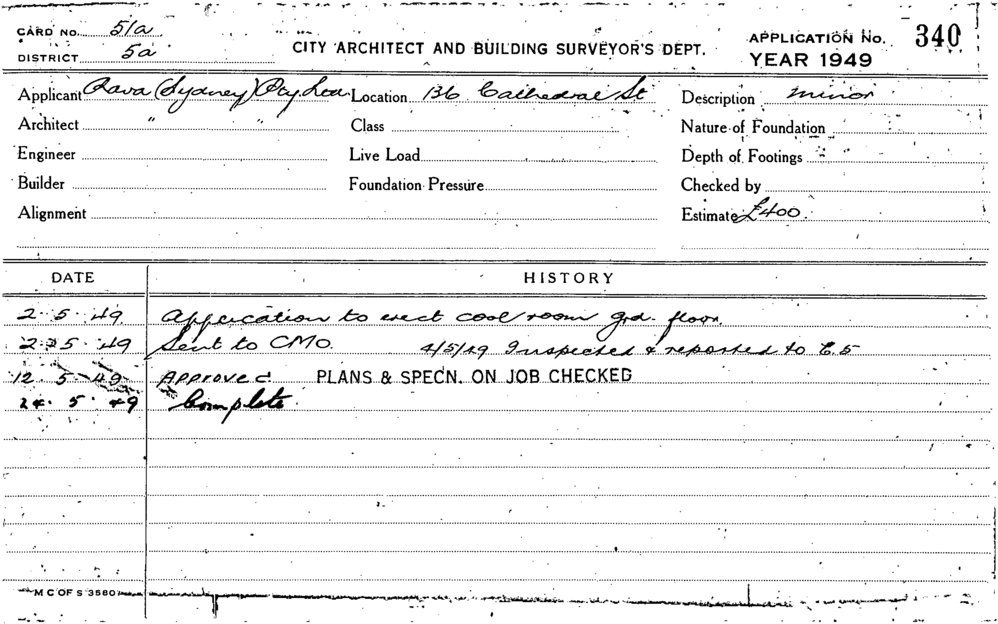 CARD NO. 51a
DISTRICT 5a
CITY ARCHITECT AND BUILDING SURVEYOR'S DEPT.
APPLICATION No. 340
YEAR 1949
Applicant Rava (Sydney) Pty Ltd Location 136 Cathedral St Description minor
Architect " " Class Nature of Foundation
Engineer Live Load Depth of Footings
Builder Foundation Pressure Checked by
Alignment Estimate £400
DATE HISTORY
2. 5. 49 Application to erect cool room grd. floor.
2. 5. 49 Sent to CMO. 4/5/49 Inspected & reported to
12 5 49 Approved PLANS & SPECN. ON JOB CHECKED
24. 5. 49 Complete
M C OF S 3580